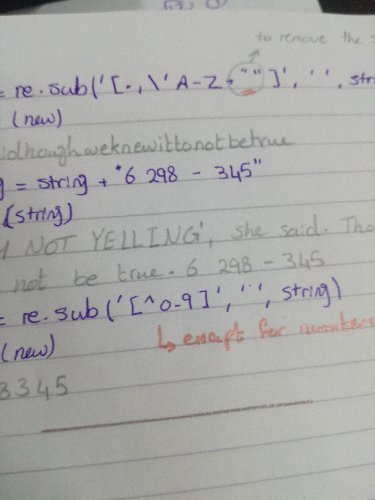 to remove the
= re.sub('[.,\'A-Z-""]','', str
(new)
idhoughweknewittonotbetrue
g = string + "6 298 - 345"
(string)
M NOT YELLING', she said. Tho
not be true. 6 298 - 345
= re.sub('[^0-9]','', string)
(new) ↳ except for numbers
8345